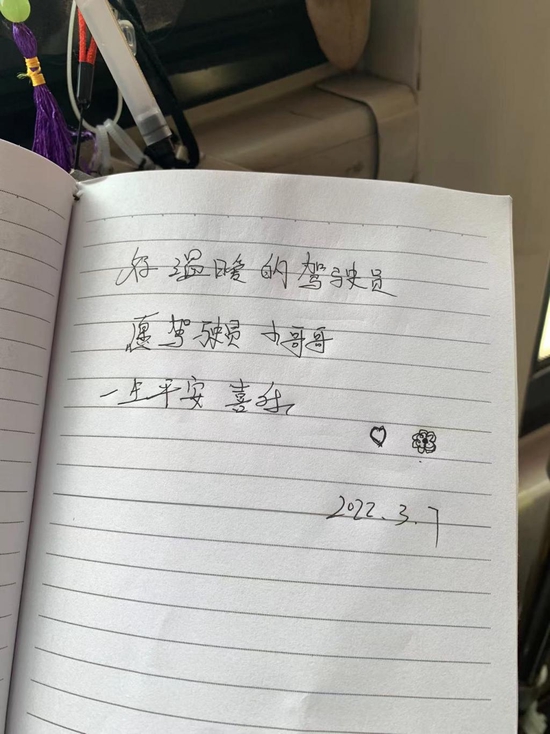 好温暖的驾驶员
愿驾驶员小哥哥
一生平安喜乐
♡
2022.3.7